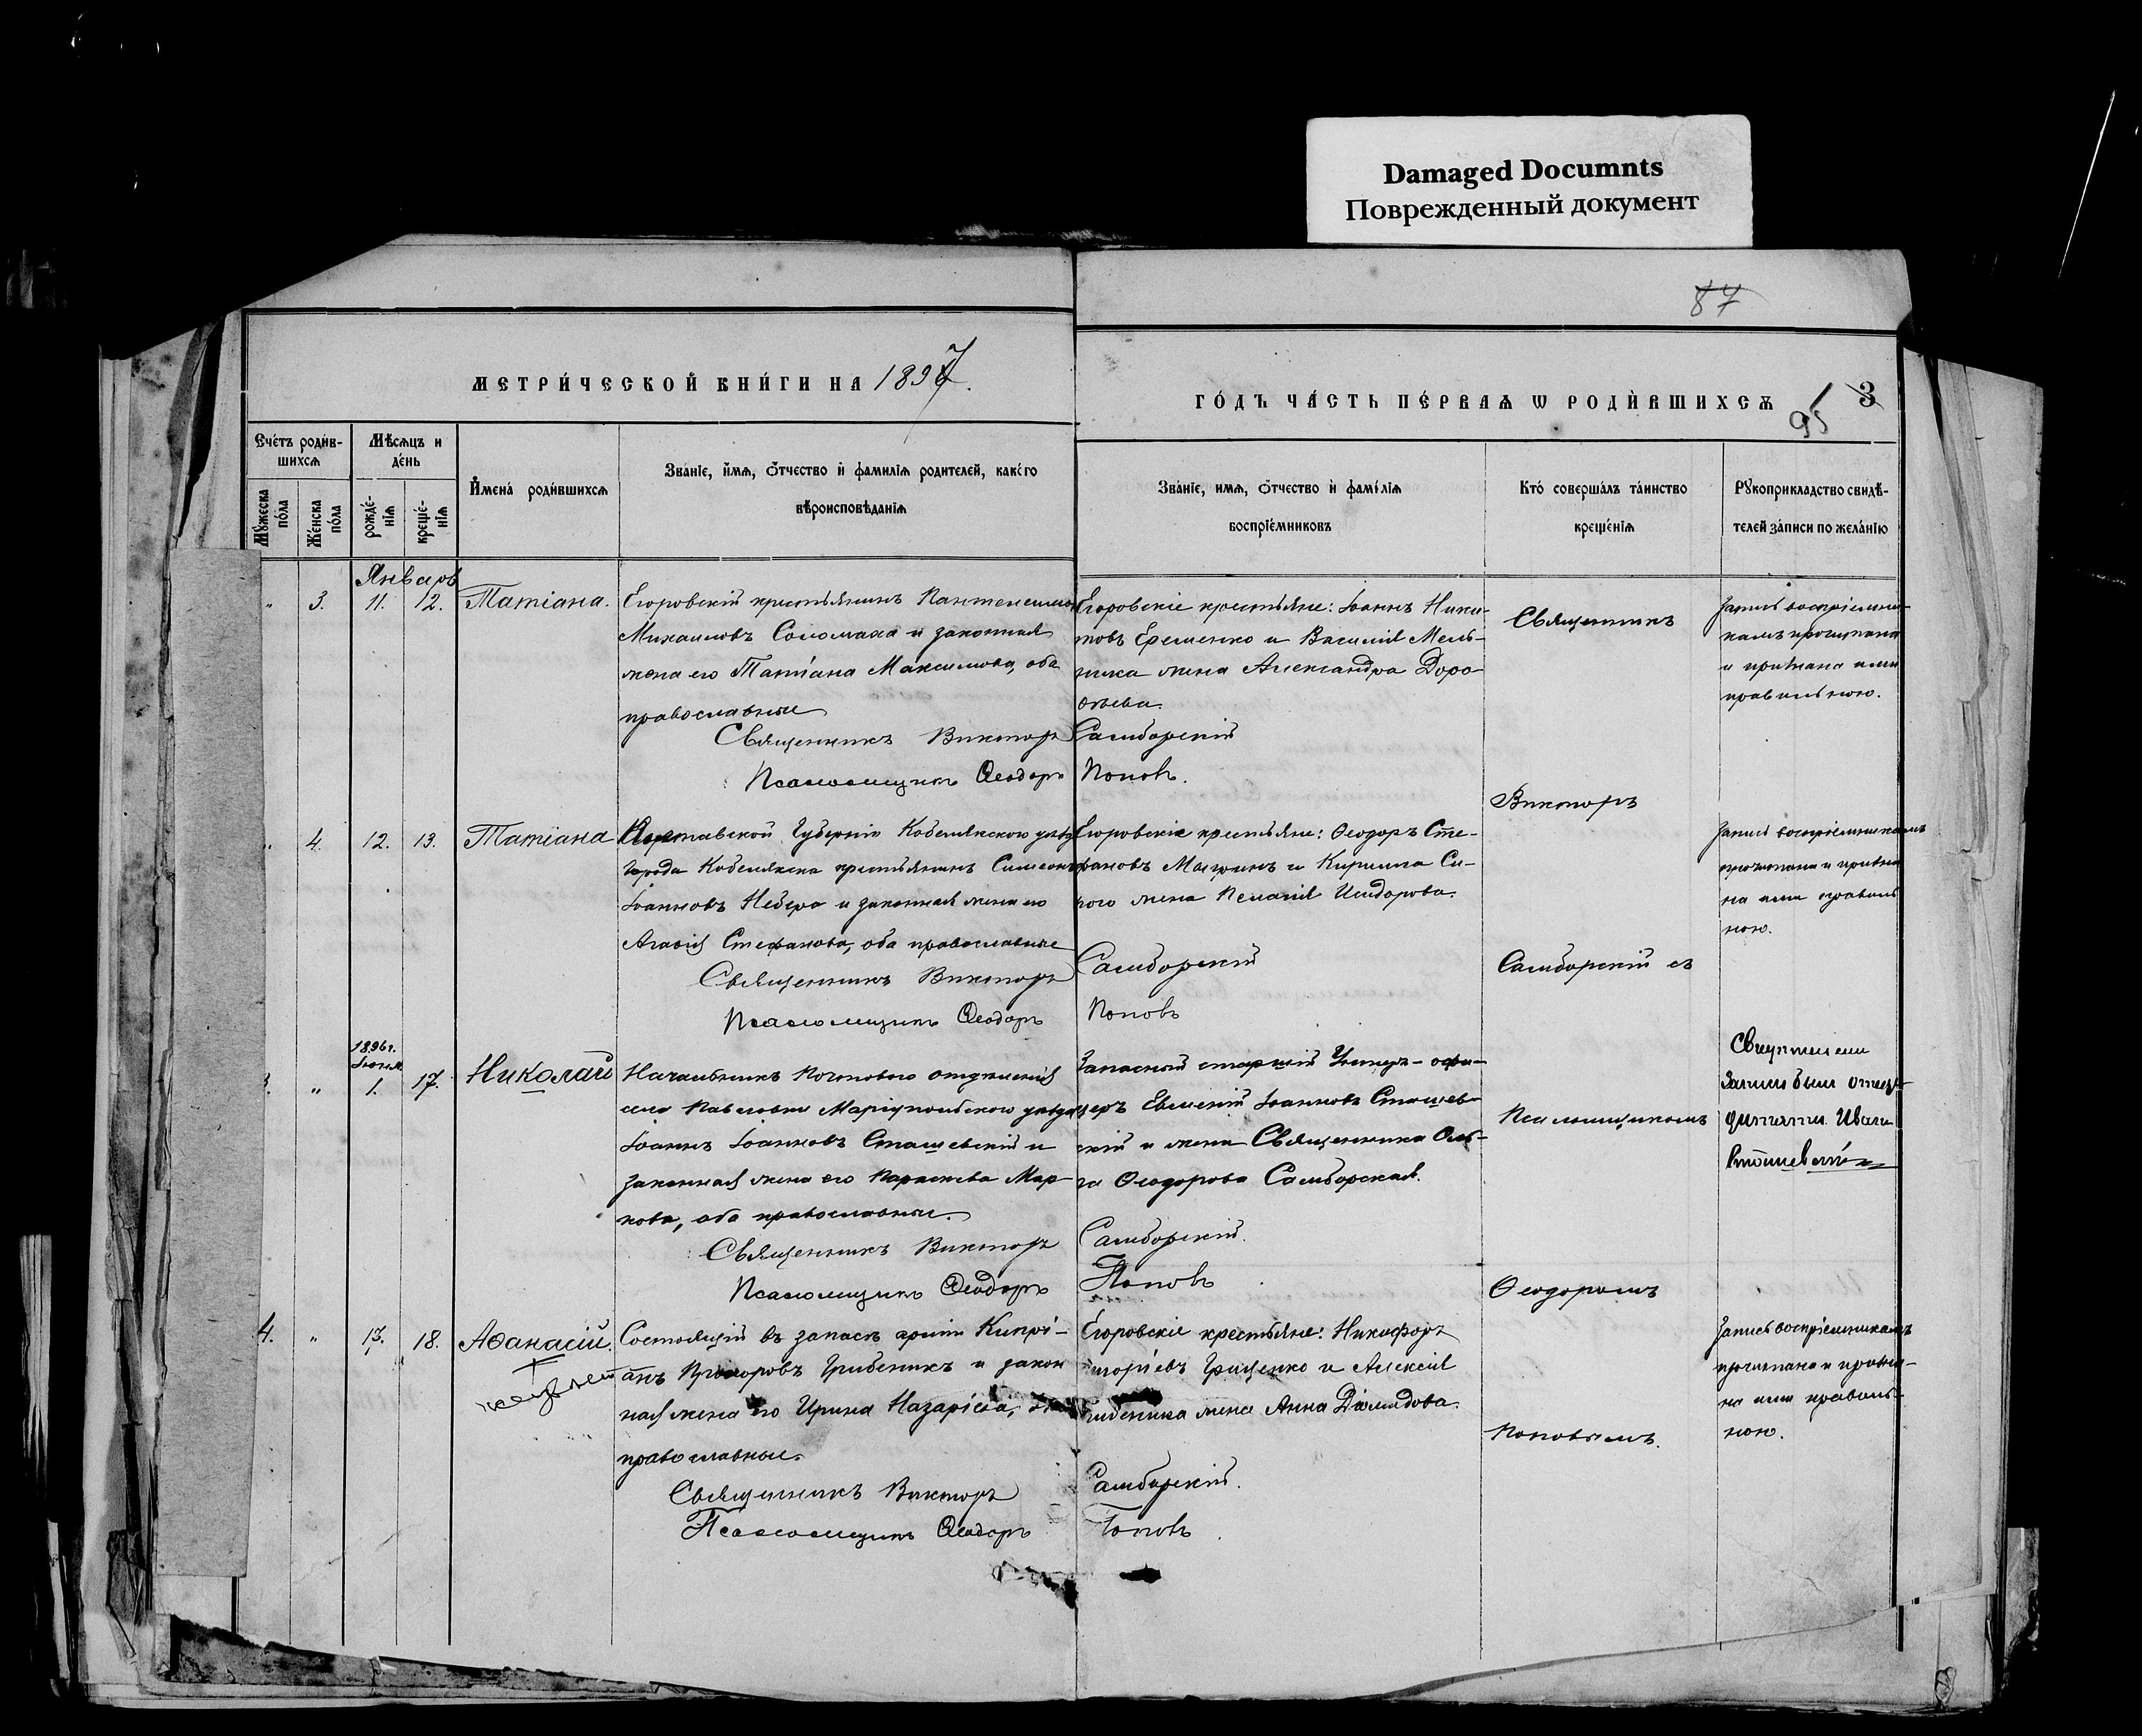 Damaged Documnts
Поврежденный документ
87
МЕТРИ́ЧЕСКОЙ КНИ́ГИ НА 1897.
ГО́ДЪ ЧА́СТЬ ПЕ́РВАѦ Ѡ РОДИ́ВШИХСѦ
95 3
Счéтъ роди́в-
шихсѧ
Мѣсѧцъ и
дéнь
Мꙋ́жеска
пóла
Жéнска
пóла
рождé-
нїѧ
крещé-
нїѧ
И҆мена́ роди́вшихсѧ
Зва́нїе, и҆́мѧ, ѻ҆́тчество и҆ фамилїѧ родителей, какóго
вѣроисповѣданїѧ
Зва́нїе, имѧ, ѻ҆́тчество и҆ фамı́лїѧ
воспрїéмниковъ
Ктó совершáлъ тáинство
крещéнїѧ
Рꙋкоприкладство свидѣ-
телей зáписи по желáнїю
Январь
" 3. 11. 12. Татіана.
Егоровскій крестьянинъ Пантелеимонъ
Михаиловъ Соломаха и законная
жена его Татіана Максимова, оба
православные
Священникъ Викторъ Самборскій
Псаломщикъ Ѳеодоръ Поповъ.
Егоровскіе крестьяне: Іоаннъ Ники-
товъ Еременко и Василія Мель-
ника жена Александра Доро-
ѳѣева.
Священникъ
Запись воспріемни-
камъ прочитана
и признана ими
правильною.
" 4. 12. 13. Татіана
Полтавской Губерніи Кобелякскаго уѣзда
Города Кобеляка крестьянинъ Симеонъ
Іоанновъ и законная жена его
Агаѳія Стефанова, оба православные
Священникъ Викторъ Самборскій
Псаломщикъ Ѳеодоръ Поповъ
Егоровскіе крестьяне: Ѳеодоръ Сте-
фановъ и Кирилла Си-
жена Пелагія Исидорова.
Викторъ
Самборскій съ
Запись воспріемникамъ
прочитана и призна-
на ими правиль-
ною.
1896 г.
Іюня
3. " 1. 17. Николай
Начальникъ Почтоваго отдѣленія
села Павловки Маріупольскаго уѣзда
Іоаннъ Іоанновъ Сташевскій и
законная жена его Параскева Мар-
кова, оба православные.
Священникъ Викторъ Самборскій.
Псаломщикъ Ѳеодоръ Поповъ
Запасный старшій Унтеръ-офи-
церъ Евгеній Іоанновъ Сташев-
скій и жена Священника Оль-
га Ѳеодорова Самборская.
Псаломщикомъ
Ѳеодоромъ
Свидетелем
записи был отец
дитяти Иван
Сташевский
4. " 13. 18. Аѳанасій.
Состоящій въ запасѣ арміи Кипрі-
анъ Прохоровъ Грибеникъ и закон
ная жена его Ирина Назаріева, оба
православные.
Священникъ Викторъ Самборскій.
Псаломщикъ Ѳеодоръ Поповъ
Егоровскіе крестьяне: Никифоръ
Григорьевъ Грищенко и Алексія
Грибеника жена Анна Діомидова.
Поповымъ.
Запись воспріемникамъ
прочитана и призна-
на ими правиль-
ною.